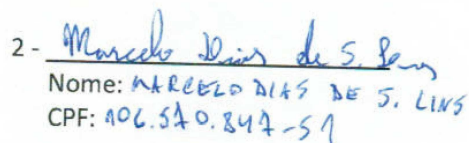 2 - Marcelo Dias de S. Lins
Nome: MARCELO DIAS DE S. LINS
CPF: 106.570.847-51